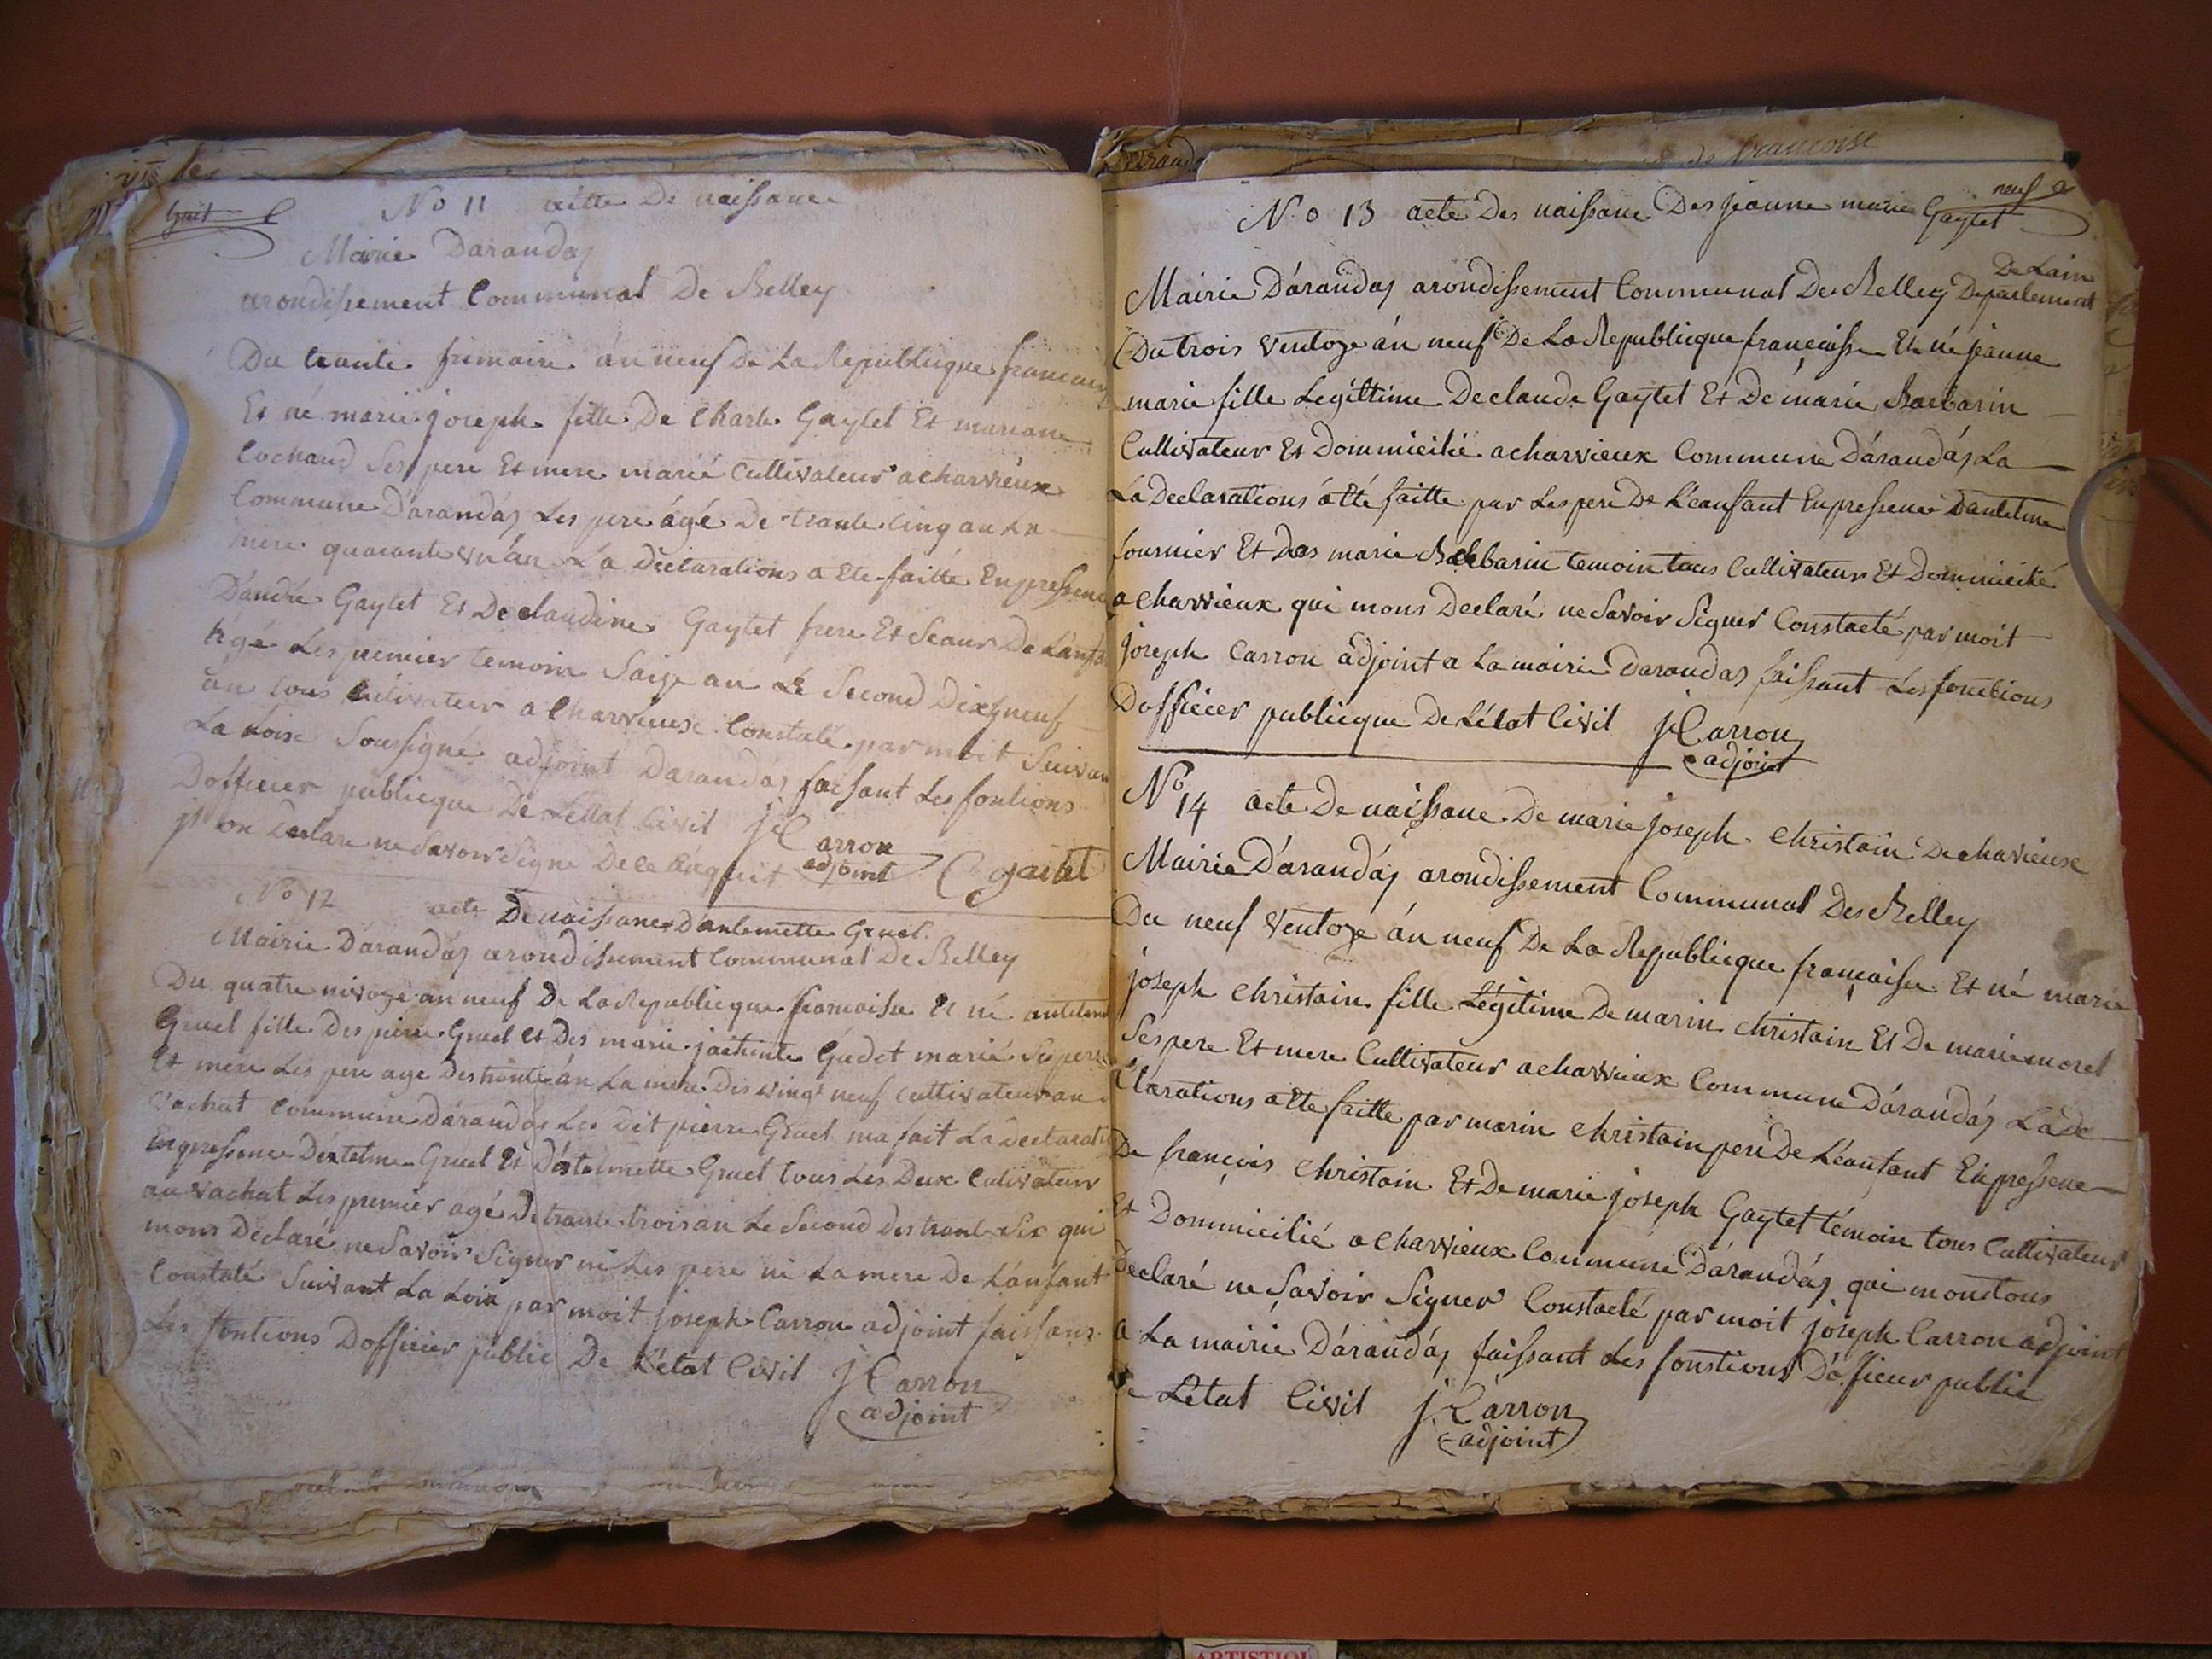 huit
No 11 actte De naissance
Mairie Darandas
arondissement Communal De Belley
Du trante frimaire án neuf De La Republicque francaise
Et né marie joseph fille De Charle Gaytet Et mariane
Cochaud Ses pere Et mere marié Cultivateur a charvieux
Commune D'arandás Les pere ágé De trante Cinq an La
mere quarante un án La Déclarations a Ete faitte En pressence
D'andré Gaytet Et De claudine Gaytet frere Et Seaur De L'anfant
agé Les premier temoin Saize an Le Second Dixs neuf
án tous Cultivateur a Charvieux Constaté par moit Suivant
La Loix Soussigné adjoint Darandás faisant Les fontions
Dofficier publicque De L'ettat Civil J Carron
jl on declare ne Savoir Signe De ce Requit adjoint C gaitet
No 12 acte De naissance D'antemette Gruel
Mairie D'arandás arondissement Communal De Belley
Du quatre nivoze an neuf De La Republicque francaise Et né
Gruel fille Des pierre Gruel et Des marie jacthinte Gudet marié Ses pere
Et mere Les pere age Des trante án La mere Des vingt neuf Cultivateur au
vachat Commune D'arandás Le Dit pierre Gruel ma fait La declaration
En pressence D'entelme Gruel Et D'antelmette Gruel tous Les Deux Cultivateur
au vachat Les premier agé De trante trois an Le Second Des trante Six qui
mons Déclaré ne Savoir Signer ni Les pere ni La mere De L'anfant
Constaté Suivant La Loix par moit joseph Carron adjoint faissans
Les fontions Dofficier public De L'état Civil J Carron
adjoint
francoise
neuf
No 13 acte Des naissance Des jeanne marie Gaytet
De Lain
Mairie D'arandas arondissement Communal Des Belley Departement
Du trois Ventoze án neuf De La Republicque françaisse Et né jeanne
marie fille Legittime De claude Gaytet Et De marie Barbarin
Cultivateur Et Dommicilié a charvieux Commune D'arandás La
La Declarations á été faitte par Les pere De L'eanfant En pressence Dantelme
fournier Et Des marie Barbarin temoin tous Cultivateur Et Dommicilié
a charvieux qui mons Declaré ne Savoir Signer Constacté par moit
joseph Carron adjoint a La mairie Darandas faissant Les fonctions
Dofficier publicque De L'état Civil J Carron
adjoint
No 14 acte De naissance De marie joseph Christain De chavieux
Mairie D'arandás arondissement Communal Des Belley
Du neuf Ventoze án neuf De La Republicque françaisse Et né marie
joseph Christain fille Légitime De marin christain Et De marie morel
Ses pere Et mere Cultivateur a charvieux Commune D'arandás La De
Clarations a Ete faitte par marin christain pere De L'eanfant En pressence
De françois Christain Et De marie joseph Gaytet témoin tous Cultivateur
Et Dommicilié a Charvieux Commune D'arandás qui mons tous
Declaré ne Savoir Signer Constacté par moit joseph Carron adjoint
a La mairie D'arandás faissant Les fonstions D'officeur public
De L'etat Civil J Carron
adjoint
ARTISTIQU